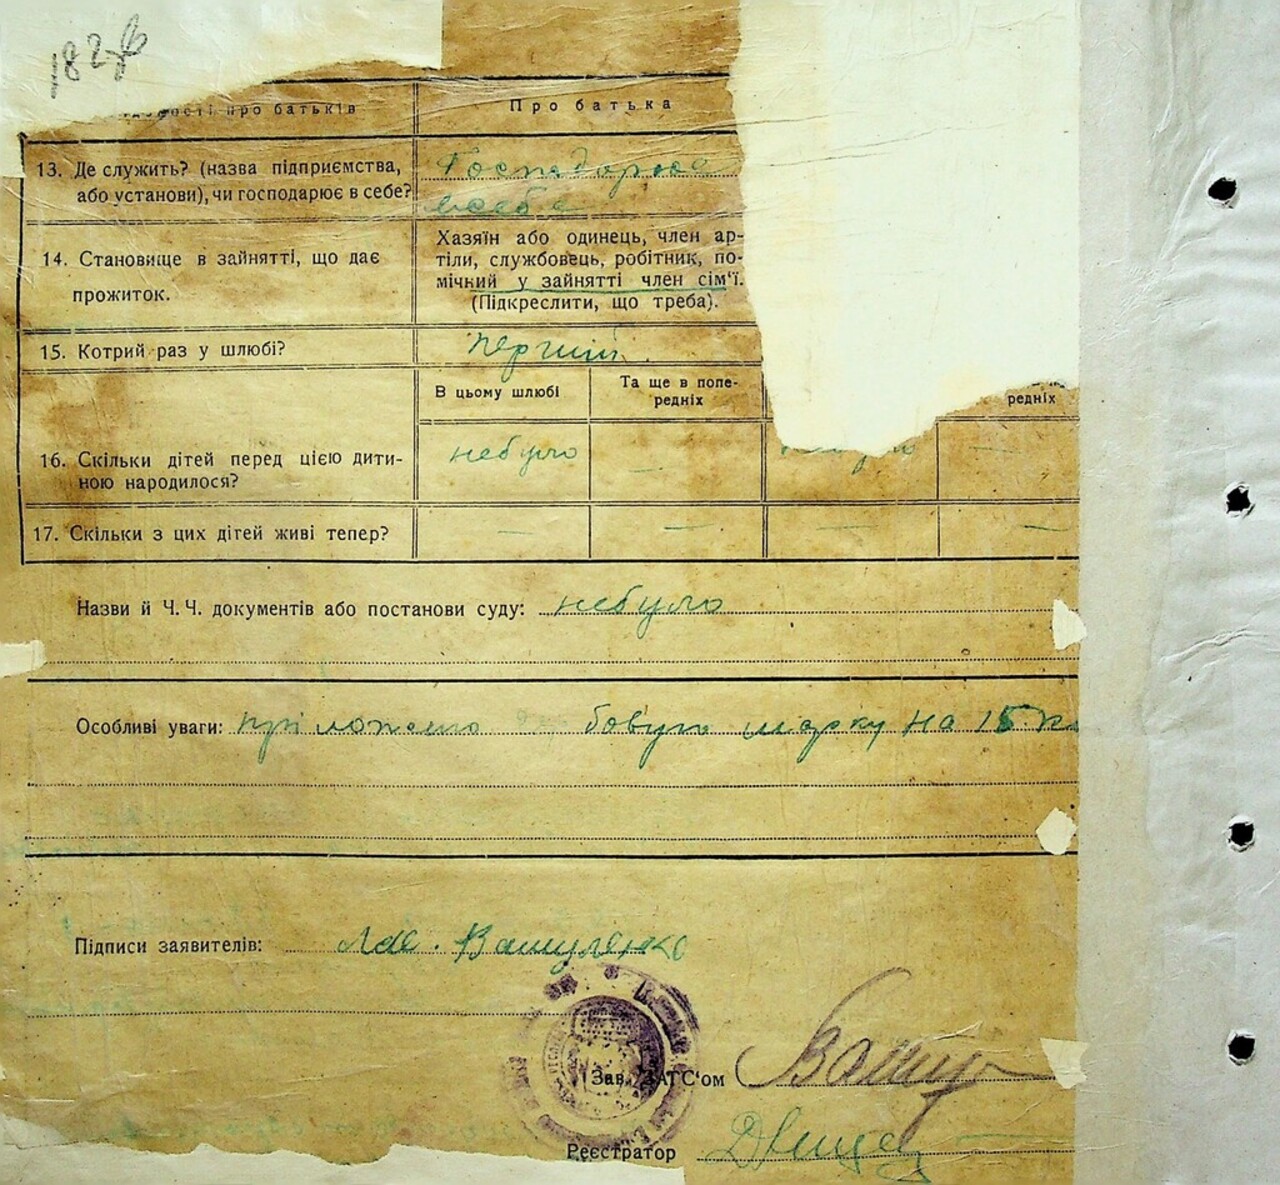 про батьків
Про батька
13. Де служить? (назва підприємства,
або установи), чи господарює в себе?
Господарює
всебе
14. Становище в зайнятті, що дає
прожиток.
Хазяїн або одинець, член ар-
тіли, службовець, робітник, по-
мічний у зайнятті член сім‘ї.
(Підкреслити, що треба).
15. Котрий раз у шлюбі?
перший
В цьому шлюбі
Та ще в попе-
редніх
редніх
16. Скільки дітей перед цією дити-
ною народилося?
небуло — —
17. Скільки з цих дітей живі тепер?
— — — —
Назви й Ч.Ч. документів або постанови суду: небуло
Особливі уваги: приложено бовую марку на 15 к
Підписи заявителів: Вашуленко
Зав. ЗАГС‘ом
Реєстратор